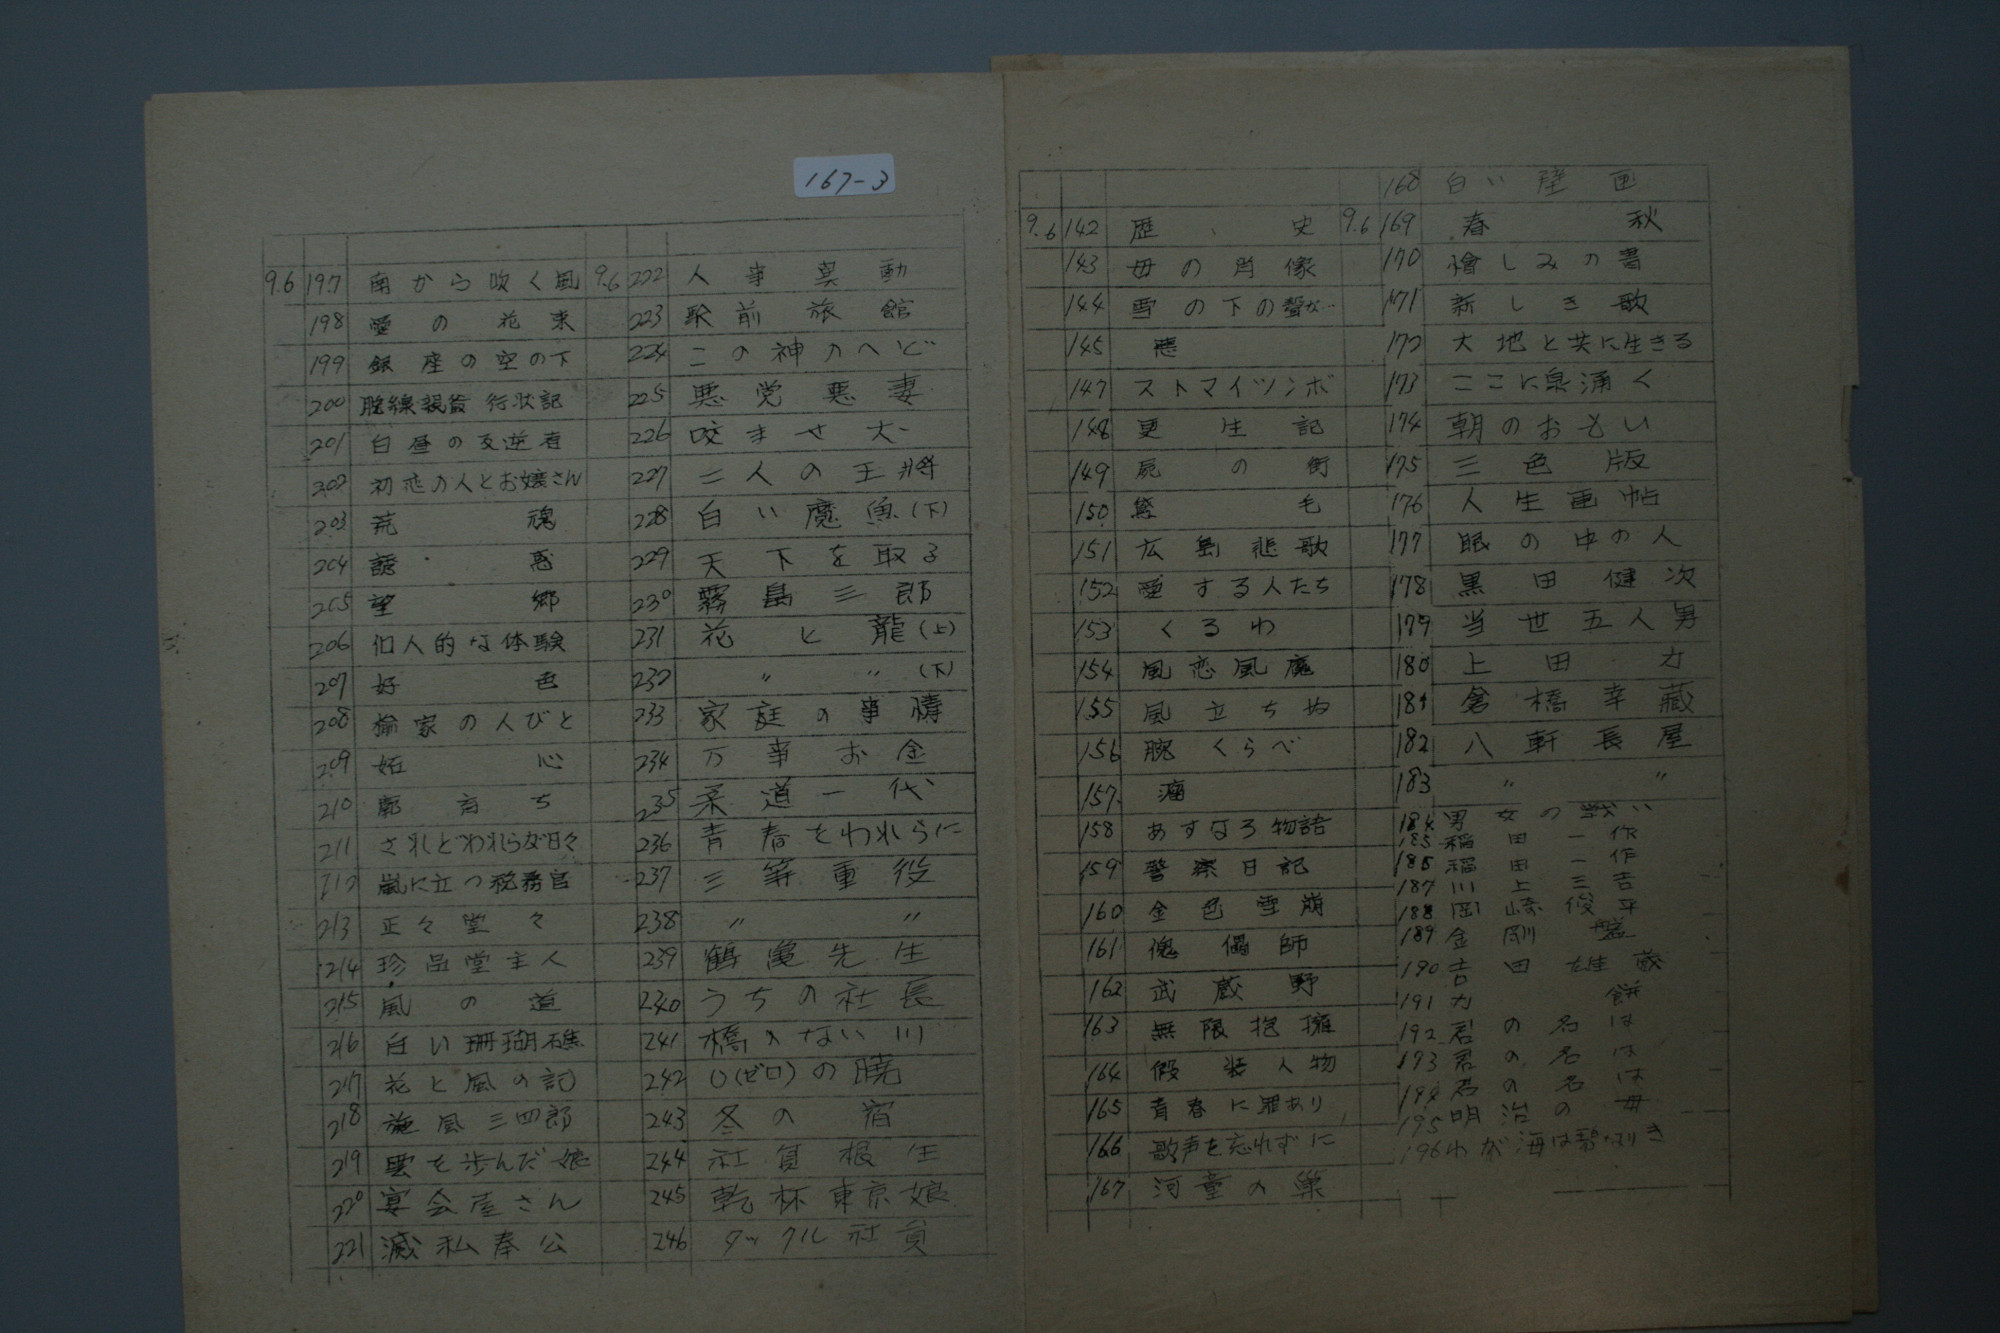 167-3
9.6 197 南から吹く風
198 愛の花束
199 銀座の空の下
200 脱線親爺行状記
201 白昼の反逆者
202 初恋の人とお嬢さん
203 荒魂
204 誘惑
205 望郷
206 個人的な体験
207 好色
208 楡家の人びと
209 妬心
210 廓育ち
211 されどわれらが日々
212 嵐に立つ税務官
213 正々堂々
214 珍品堂主人
215 風の道
216 白い珊瑚礁
217 花と風の記
218 旋風三四郎
219 雲を歩んだ娘
220 宴会屋さん
221 滅私奉公
9.6 222 人事異動
223 駅前旅館
224 この神のへど
225 悪党悪妻
226 咬ませ犬
227 二人の王将
228 白い魔魚(下)
229 天下を取る
230 霧島三郎
231 花と龍(上)
232 〃 〃(下)
233 家庭の事情
234 万事お金
235 柔道一代
236 青春をわれらに
237 三等重役
238 〃 〃
239 鶴亀先生
240 うちの社長
241 橋のない川
242 0(ゼロ)の暁
243 冬の宿
244 社員根生
245 乾杯東京娘
246 タックル社員
9.6 142 歴史
143 母の肖像
144 雪の下の聲が…
145
147 ストマイツンボ
148 更生記
149 屍の街
150 鬘毛
151 広島悲歌
152 愛する人たち
153 くるわ
154 風恋風魔
155 風立ちぬ
156 腕くらべ
157
158 あすなろ物語
159 警察日記
160 金色雪崩
161 傀儡師
162 武蔵野
163 無限抱擁
164 假装人物
165 青春に罪あり
166 歌声を忘れずに
167 河童の巣
168 白い壁画
9.6 169 春秋
170 憎しみの書
171 新しき歌
172 大地と共に生きる
173 ここに泉涌く
174 朝のおもい
175 三色版
176 人生画帖
177 眼の中の人
178 黒田健次
179 当世五人男
180 上田力
181 倉橋幸蔵
182 八軒長屋
183 〃 〃
184 男女の戦い
185 稲田一作
186 稲田一作
187 川上三吉
188 岡崎俊平
189 金剛盤
190 吉田雄蔵
191 力餅
192 君の名は
193 君の名は
194 君の名は
195 明治の母
196 わが海は碧かりき